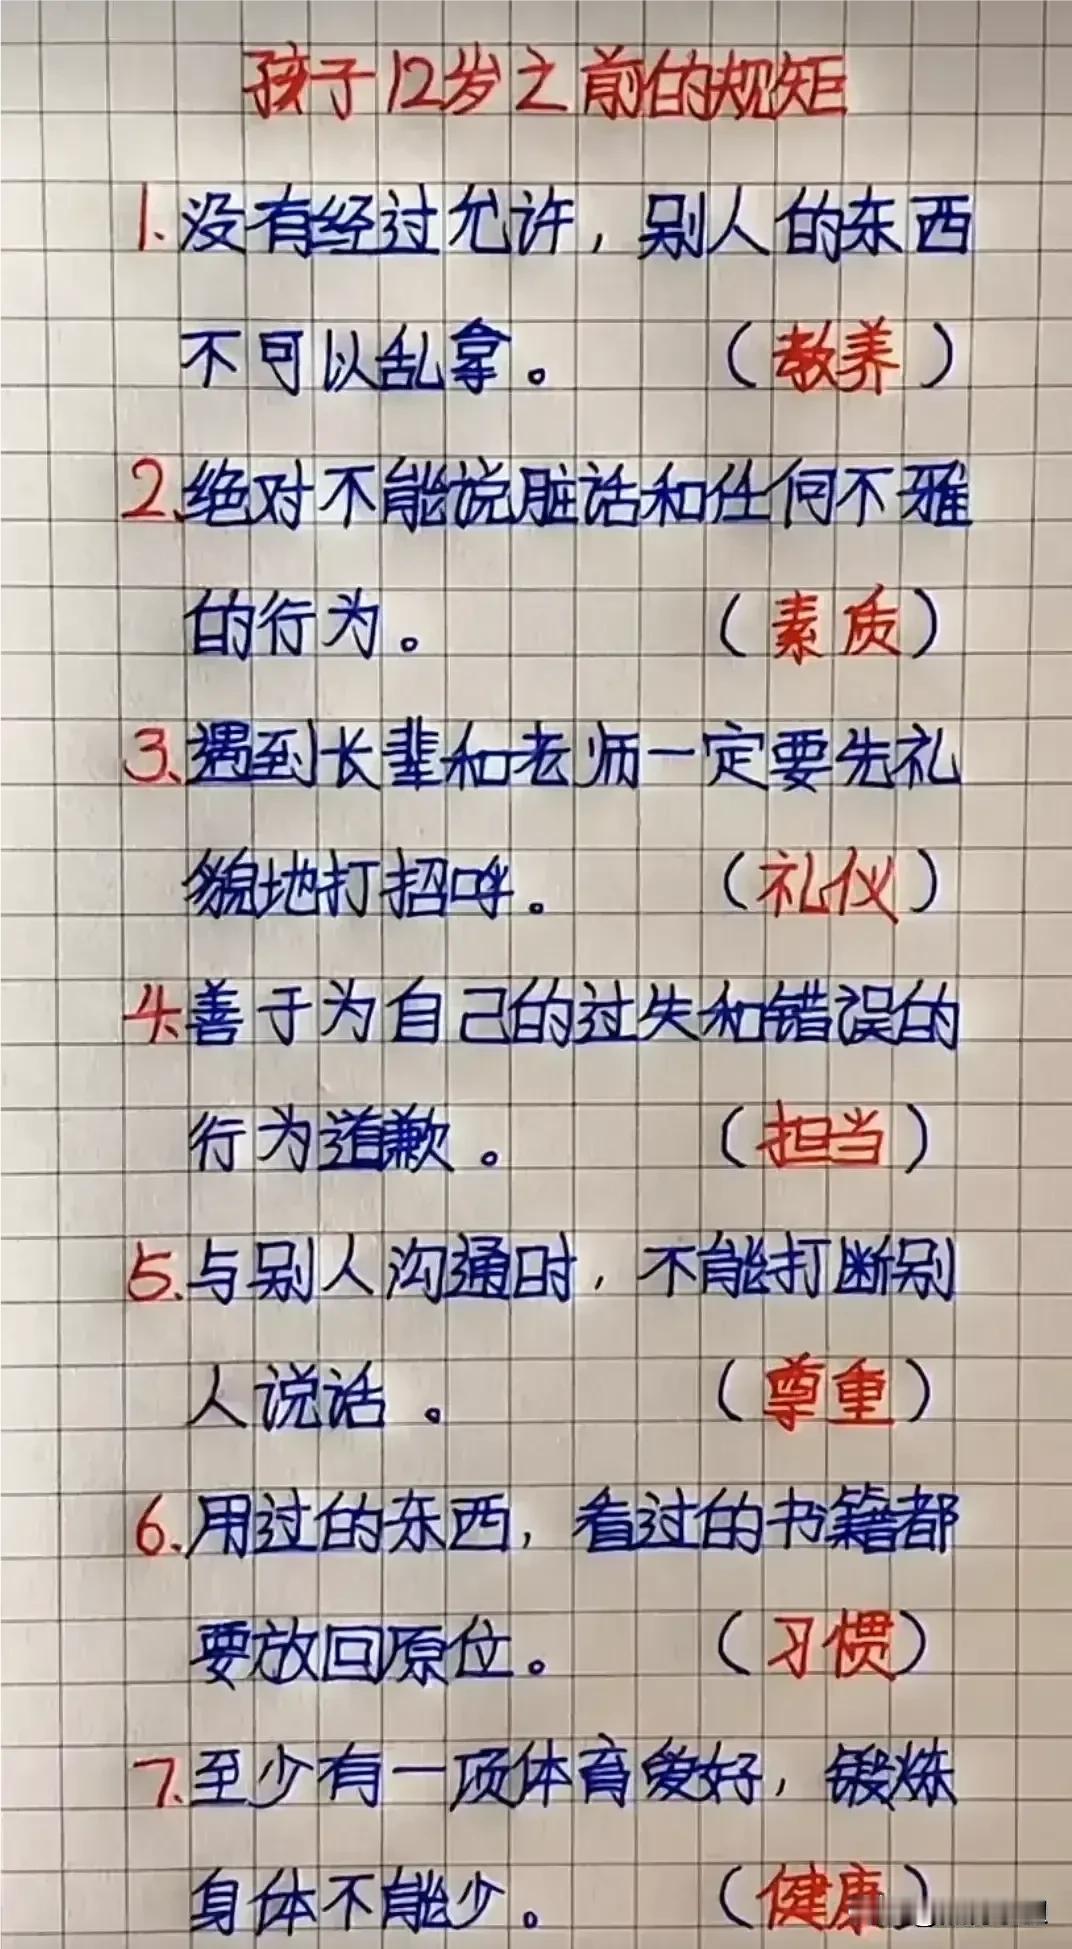 孩子12岁之前的规矩
1.没有经过允许，别人的东西
不可以乱拿。（教养）
2.绝对不能说脏话和任何不雅
的行为。（素质）
3.遇到长辈和老师一定要先礼
貌地打招呼。（礼仪）
4.善于为自己的过失和错误的
行为道歉。（担当）
5.与别人沟通时，不能打断别
人说话。（尊重）
6.用过的东西，看过的书籍都
要放回原位。（习惯）
7.至少有一项体育爱好，锻炼
身体不能少。（健康）